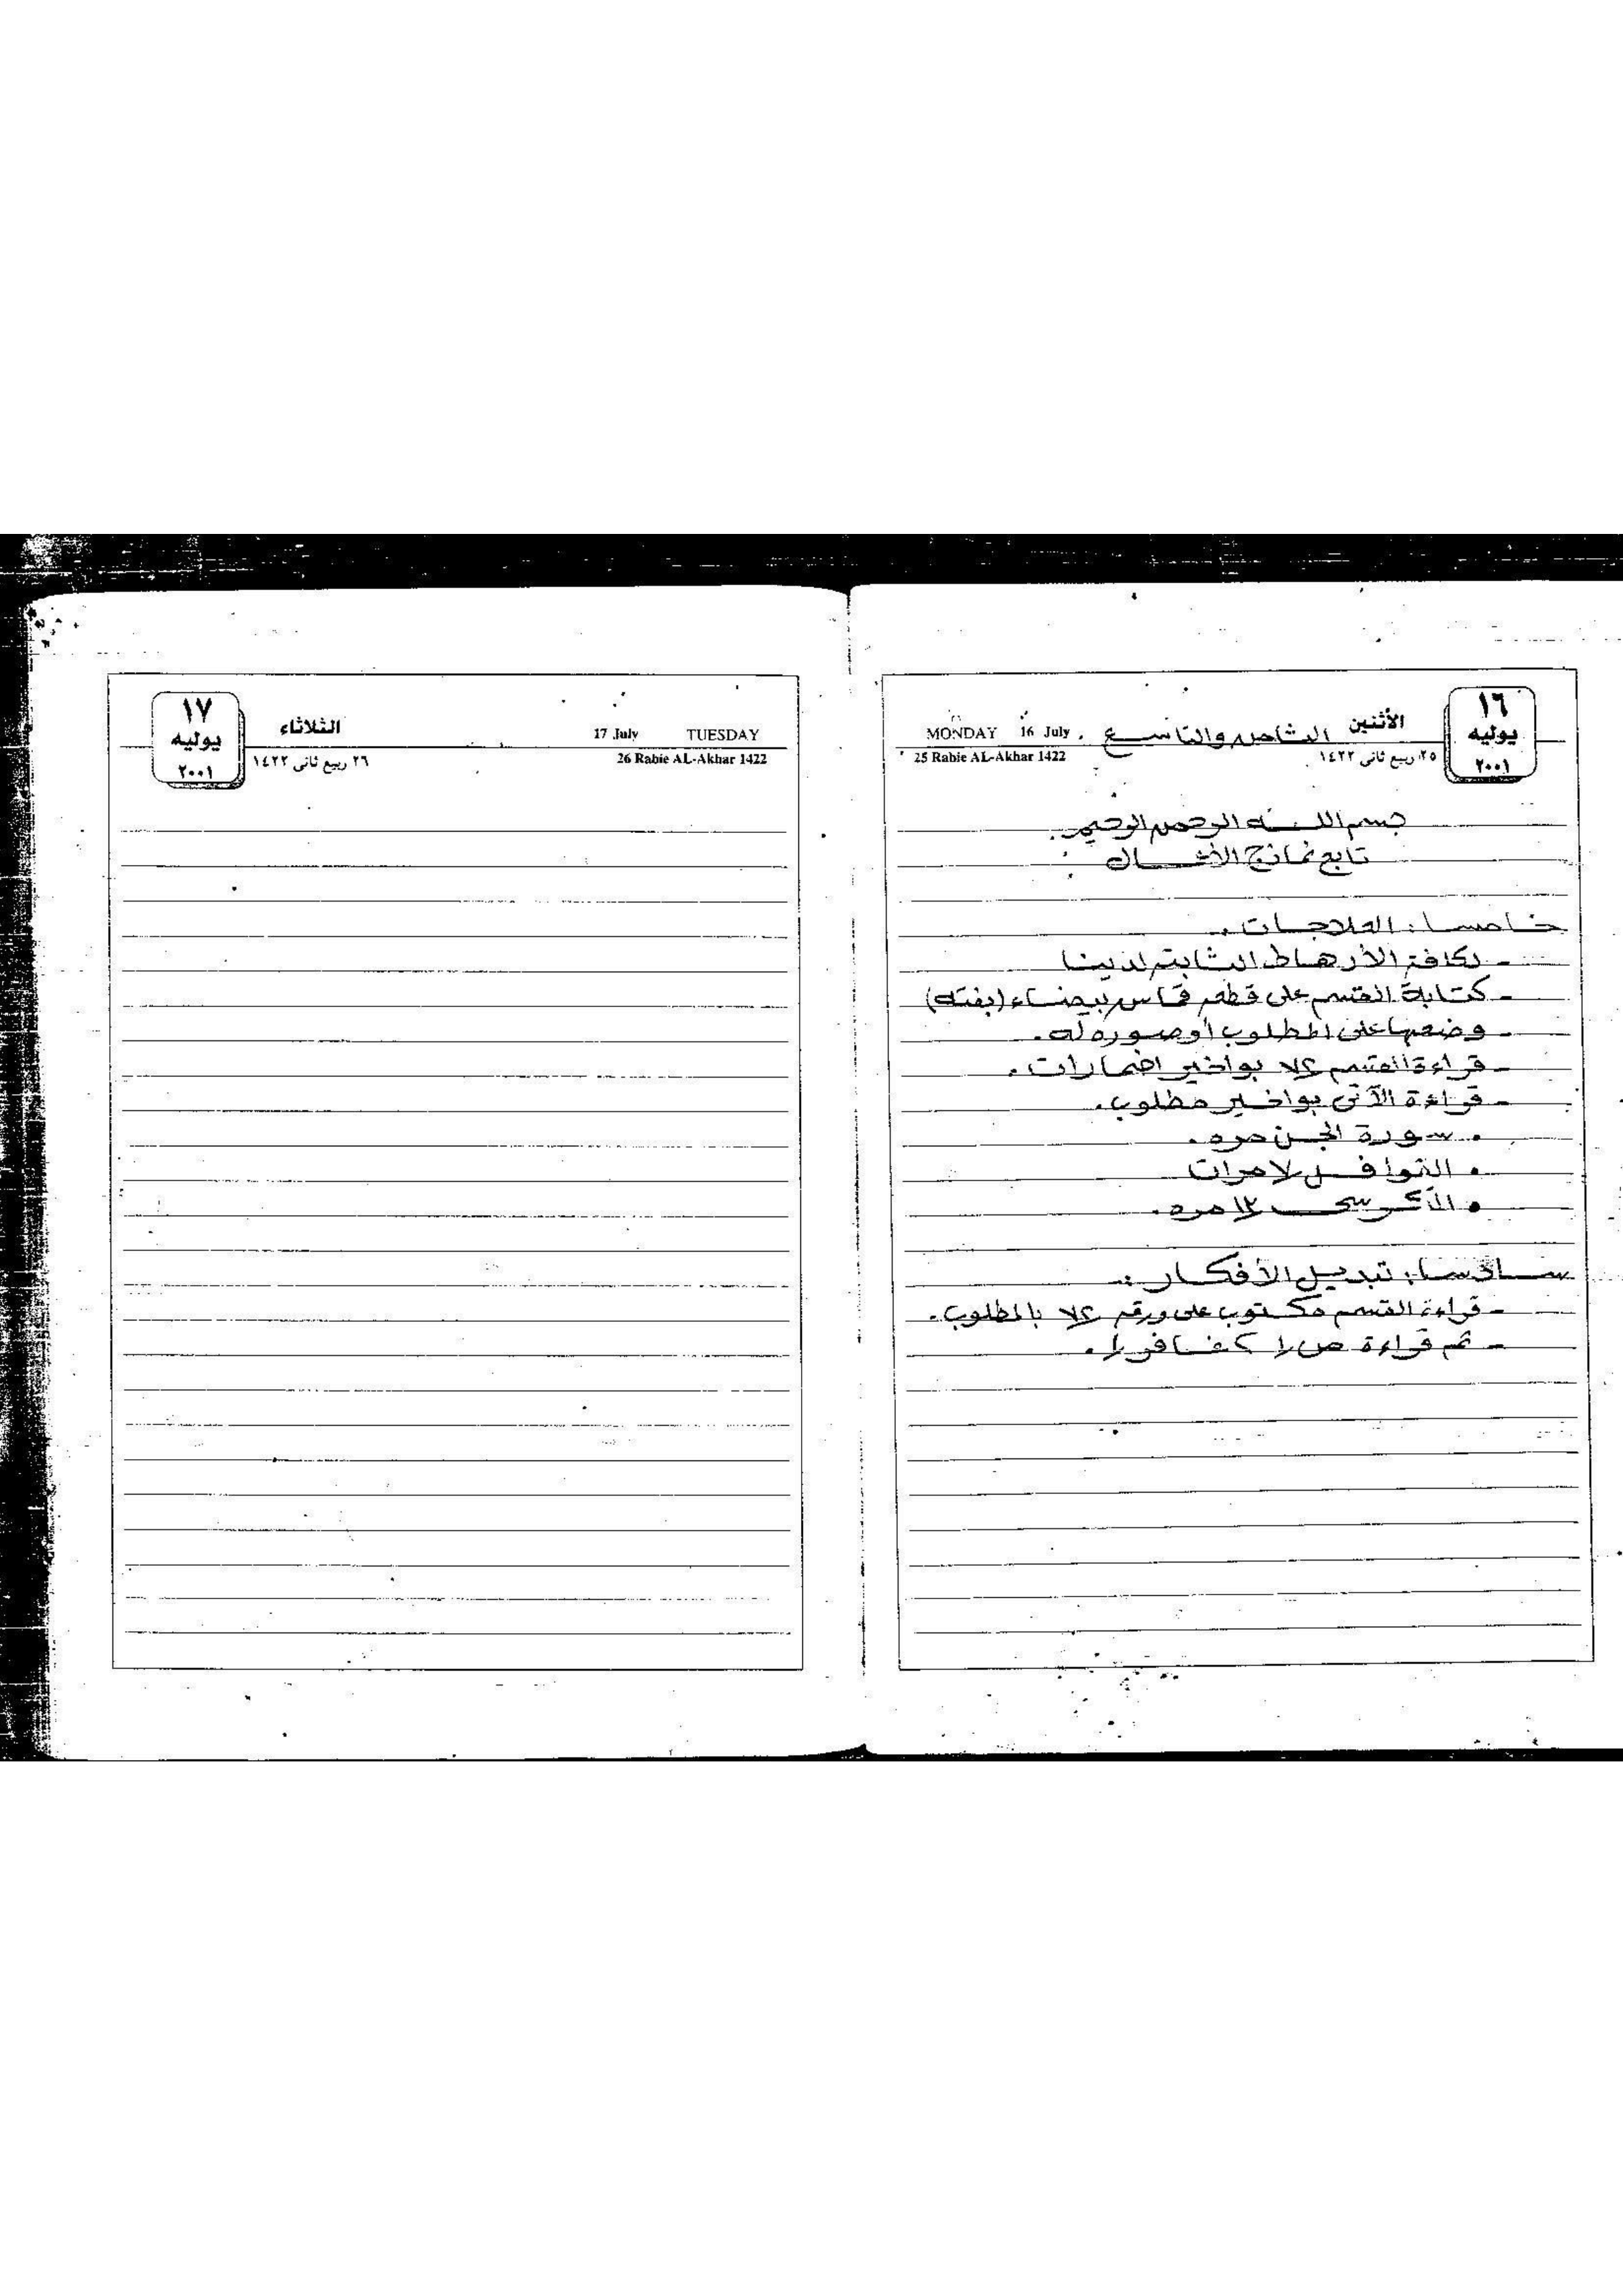 ١٦
يوليه
٢٠٠١
الأثنين
الثامن والتاسع.
MONDAY 16 July
٢٥ ربيع ثانى ١٤٢٢
25 Rabie AL-Akhar 1422
بسم اللـه الرحمن الرحيم.
تابع نماذج الأعمال :
خامسا : العلاجات.
- لكافة الأرهاط الثابتة لدينا
- كتابة القسم على قطعة قماش بيضاء (بفته)
- وضعها على المطلوب أو صوره له.
- قراءة القسم بواخير
- قراءة الآتى بواخير مطلوب.
• سورة الجن مره.
• ٧ مرات
• الكرسى مره.
سادسا : تبديل الأفكار :
- قراءة القسم مكتوب على ورقة بالمطلوب.
- ثم قراءة
١٧
يوليه
٢٠٠١
الثلاثاء
17 July TUESDAY
٢٦ ربيع ثانى ١٤٢٢
26 Rabie AL-Akhar 1422